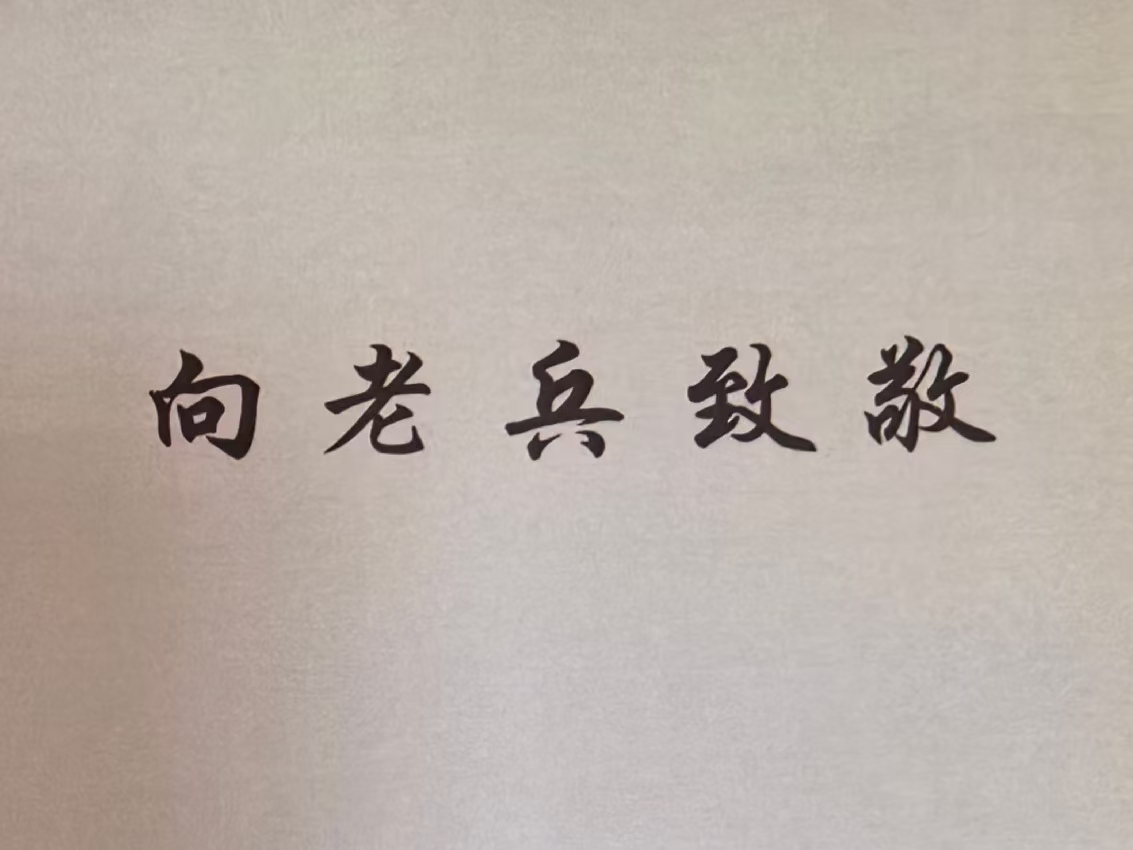 向老兵致敬